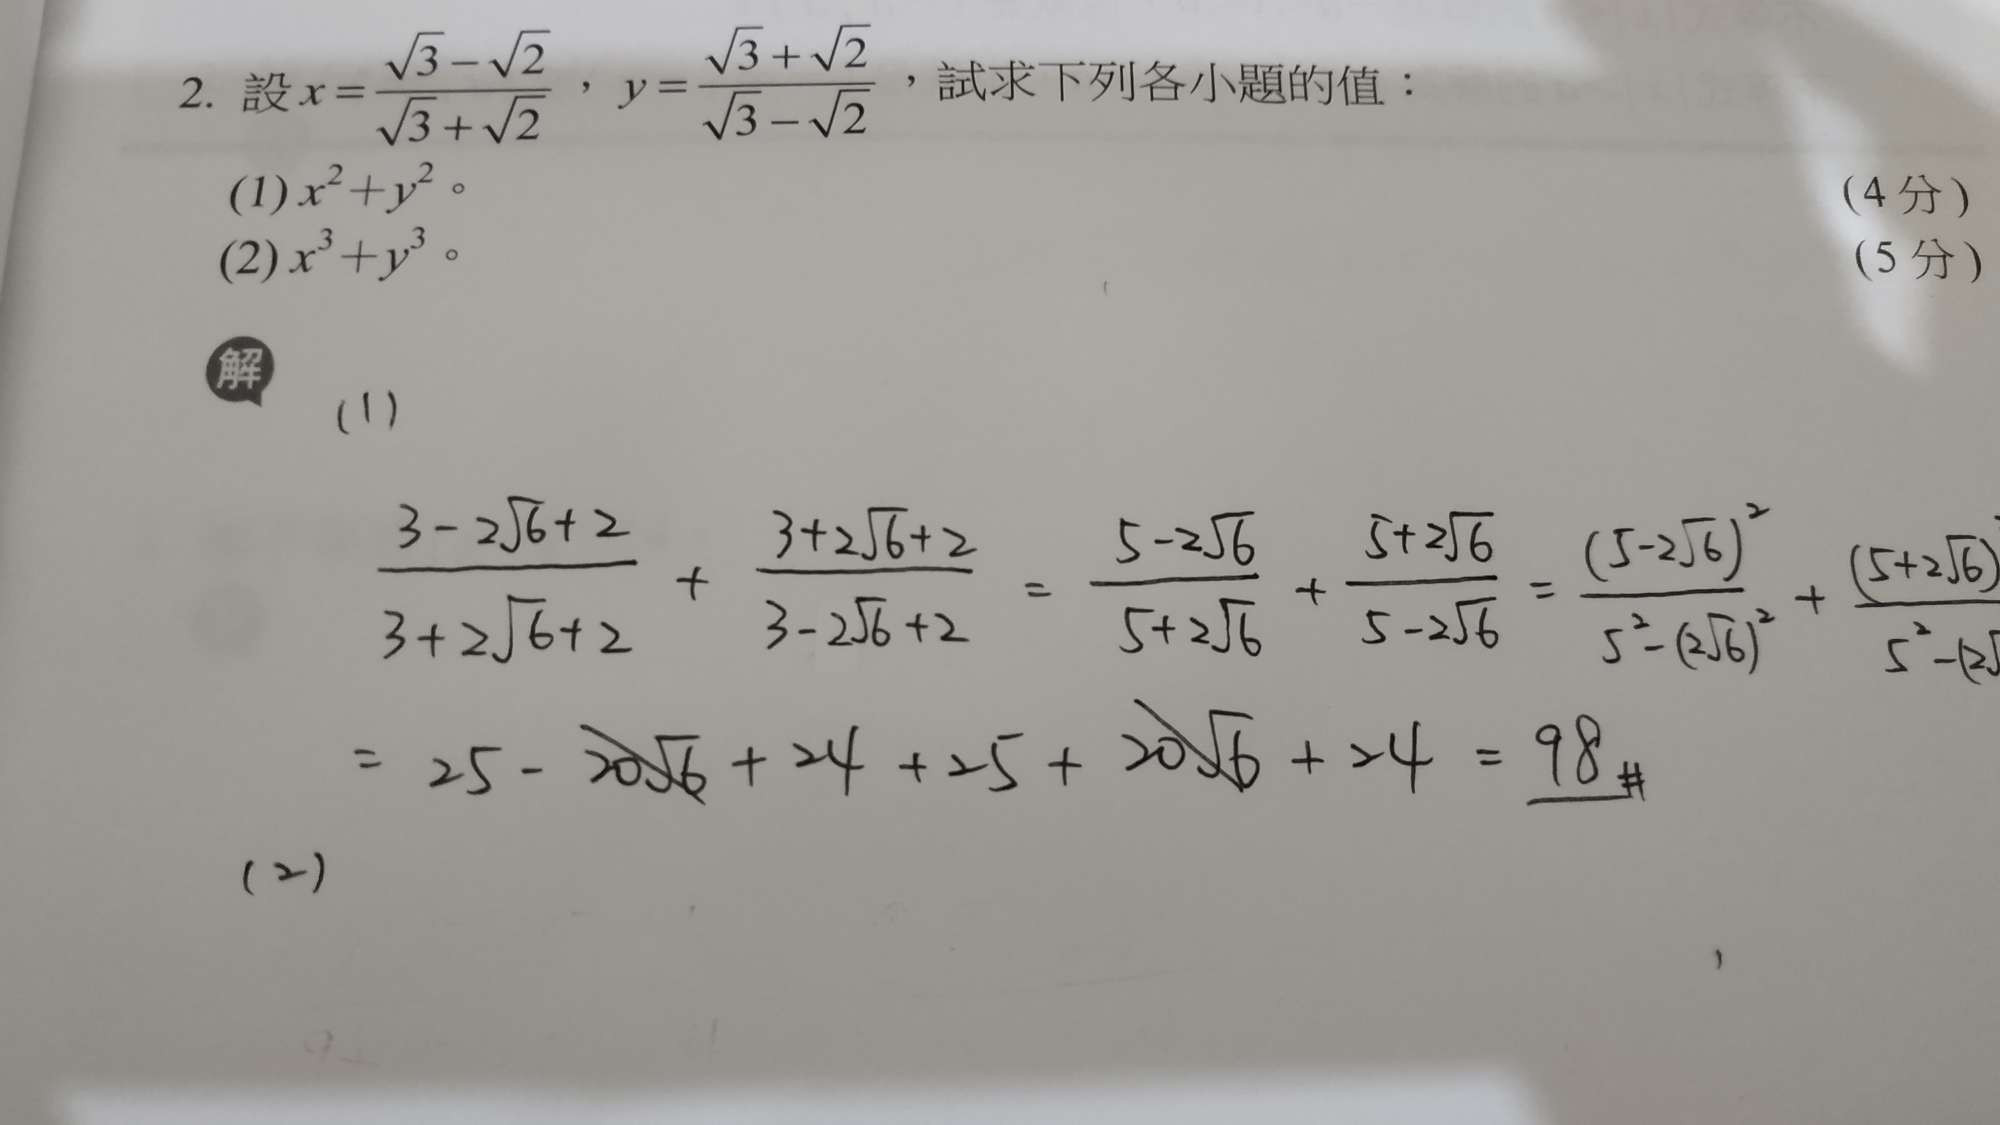 2. 設 x = (√3 − √2)/(√3 + √2) ， y = (√3 + √2)/(√3 − √2) ，試求下列各小題的值：
(1) x²+y² 。 (4 分)
(2) x³+y³ 。 (5 分)
解
(1)
(3 − 2√6 + 2)/(3 + 2√6 + 2) + (3 + 2√6 + 2)/(3 − 2√6 + 2) = (5 − 2√6)/(5 + 2√6) + (5 + 2√6)/(5 − 2√6) = (5 − 2√6)²/(5² − (2√6)²) + (5 + 2√6)/(5² − (2√
= 25 − 20√6 + 24 + 25 + 20√6 + 24 = 98 #
(2)